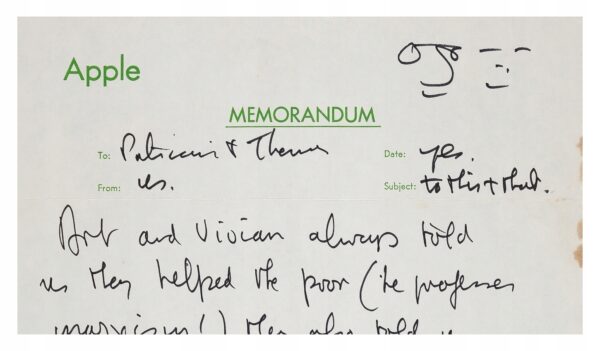 Apple
MEMORANDUM
To: +
Date: yes.
From: us.
Subject: to this + that.
Art and Vivian always told
us they helped the poor (he professes
marxism!) they also told